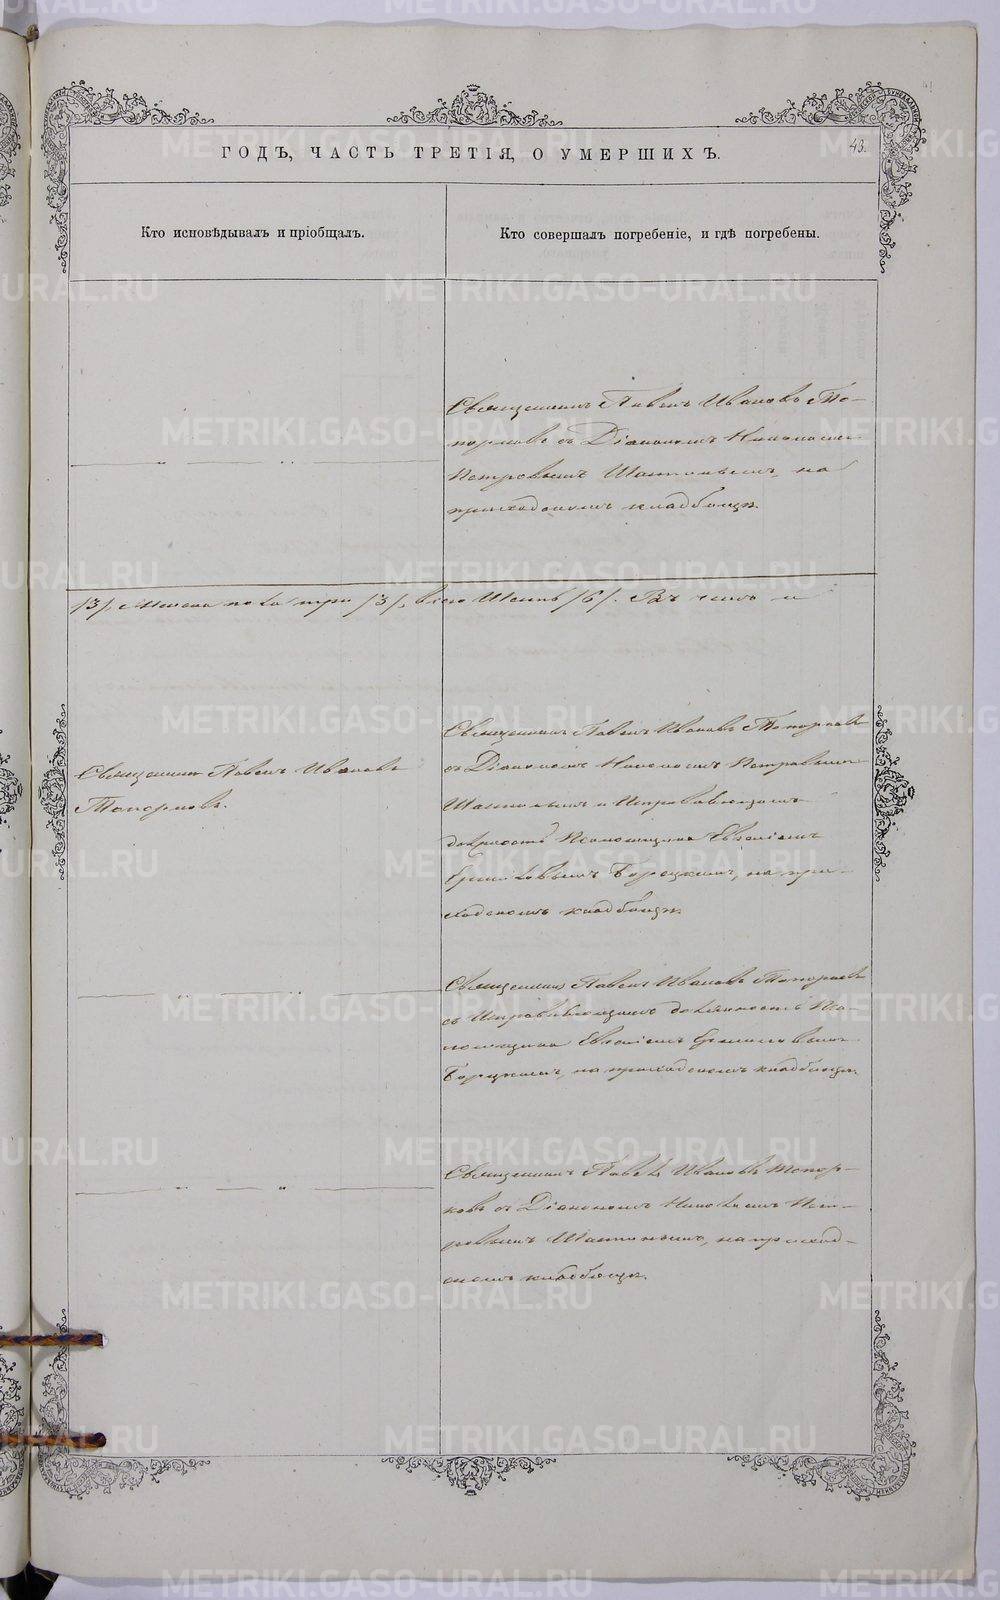 43.
ГОДЪ, ЧАСТЬ ТРЕТІЯ, О УМЕРШИХЪ.
Кто исповѣдывалъ и пріобщалъ.
Кто совершалъ погребеніе, и гдѣ погребены.
Священникъ Павелъ Ивановъ То-
порковъ съ Діакономъ Николаемъ
Петровымъ на
приходскомъ кладбищѣ.
/3/, женска пола три /3/, всего Шесть /6/. Въ числѣ и
Священникъ Павелъ Ивановъ
Топорковъ.
Священникъ Павелъ Ивановъ Топорковъ
съ Діакономъ Николаемъ Петровымъ
и Исправляющимъ
должность Псаломщика Евгеніемъ
на при-
ходскомъ кладбищѣ.
Священникъ Павелъ Ивановъ Топорковъ
съ Исправляющимъ должность Пса-
ломщика Евгеніемъ
на приходскомъ кладбищѣ.
Священникъ Павелъ Ивановъ Топор-
ковъ съ Діакономъ Николаемъ Пет-
ровымъ на приход-
скомъ кладбищѣ.
METRIKI.GASO-URAL.RU